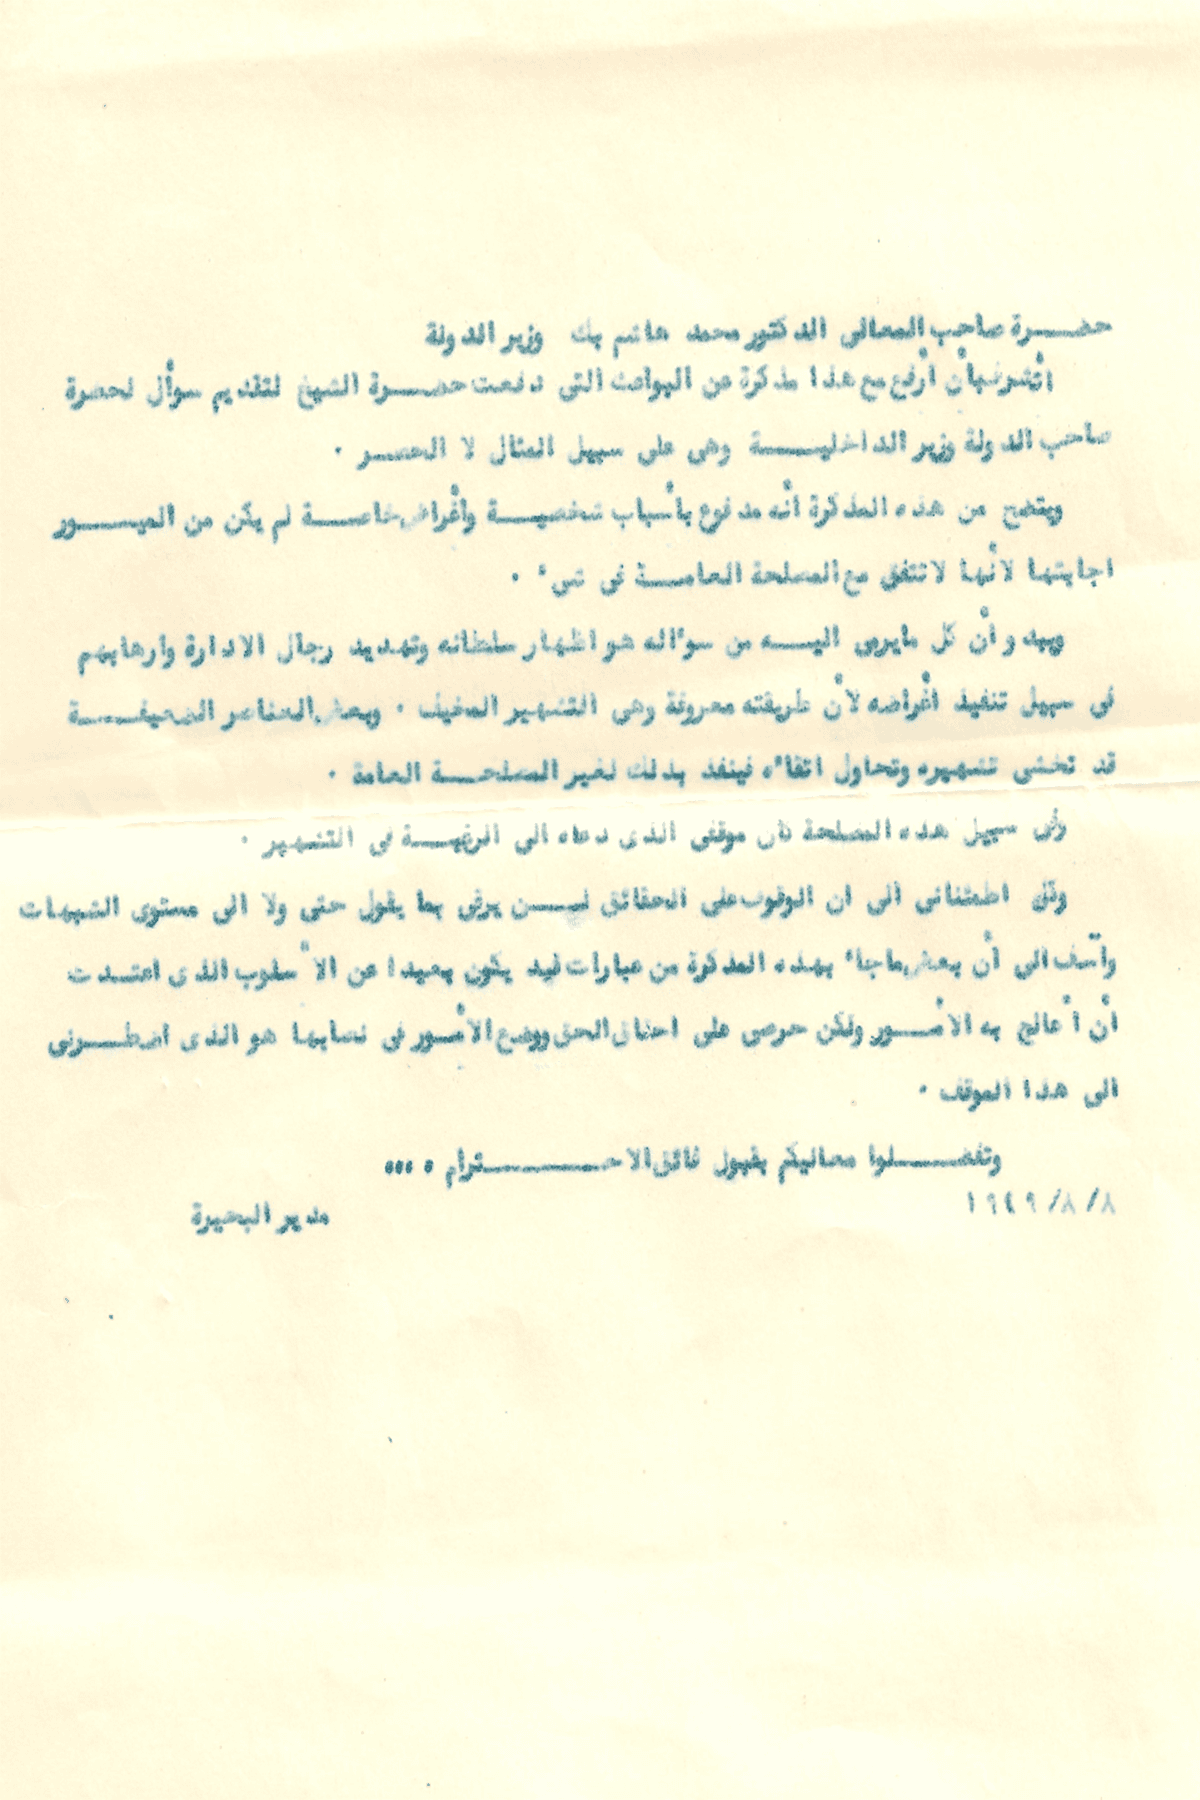 حضرة صاحب المعالى الدكتور محمد هاشم بك وزير الدولة
أتشرف بأن أرفع مع هذا مذكرة عن البواعث التى دفعت حضرة الشيخ لتقديم سوأل لحضرة
صاحب الدولة وزير الداخلية وهى على سبيل المثال لا الحصر ٠
ويتضح من هذه المذكرة أنه مدفوع بأسباب شخصية وأغراض خاصة لم يكن من الميسور
اجابتها لأنها لا تتفق مع المصلحة العامة فى شىء ٠
ويبدو أن كل مايرمى اليه من سوءاله هو اظهار سلطانه وتهديد رجال الادارة وارهابهم
فى سبيل تنفيذ أغراضه لأن طريقته معروفة وهى التشهير المخيف ٠ وبعض العناصر الضعيفة
قد تخشى تشهيره وتحاول اتقاءه فينفذ بذلك لغير المصلحة العامة ٠
وفى سبيل هذه المصلحة كان موقفى الذى دعاه الى الرغبة فى التشهير ٠
وثق اطمئنانى الى ان الوقوف على الحقائق لن يرقى بما يقول حتى ولا الى مستوى الشبهات
وآسف الى أن بعض ماجاء بهذه المذكرة من عبارات قيد يكون بعيدا عن الأسلوب الذى اعتدت
أن أعالج به الأمور ولكن حرصى على احقاق الحق ووضع الأمور فى نصابها هو الذى اضطرنى
الى هذا الموقف ٠
وتفضلوا معاليكم بقبول فائق الاحترام ٠٠٠٠
٨/ ٨/ ١٩٤٩
مدير البحيرة